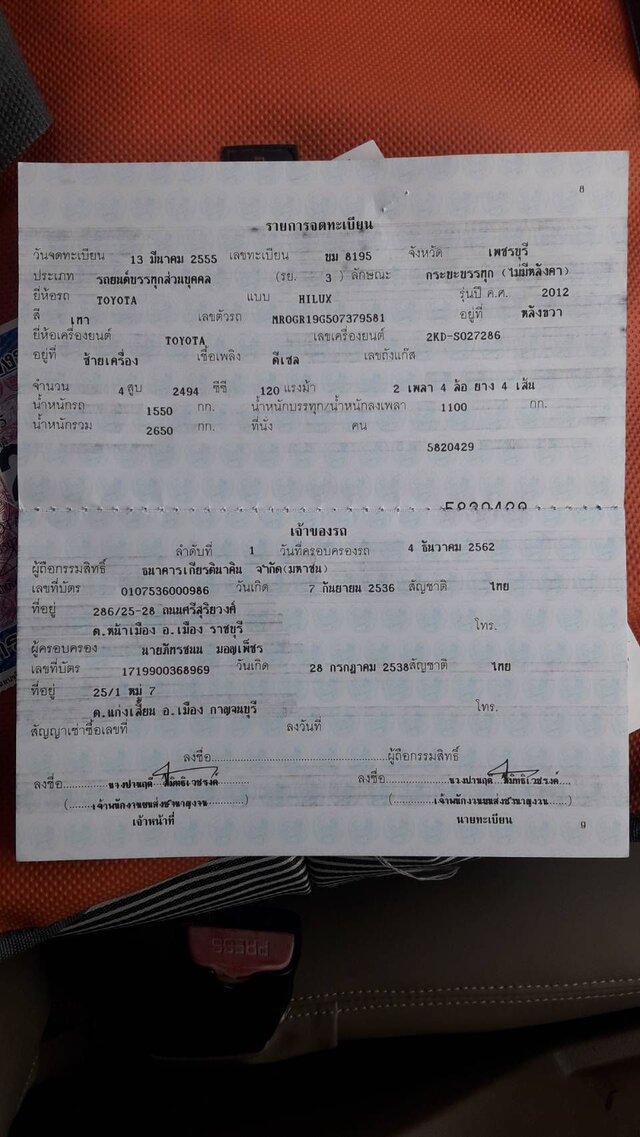 8
รายการจดทะเบียน
วันจดทะเบียน 13 มีนาคม 2555 เลขทะเบียน ขม 8195 จังหวัด เพชรบุรี
ประเภท รถยนต์บรรทุกส่วนบุคคล (รย. 3 ) ลักษณะ กระยะบรรทุก (ไม่มีหลังคา)
ยี่ห้อรถ TOYOTA แบบ HILUX รุ่นปี ค.ศ. 2012
สี เทา เลขตัวรถ MROGR19G507379581 อยู่ที่ หลังขวา
ยี่ห้อเครื่องยนต์ TOYOTA เลขเครื่องยนต์ 2KD-S027286
อยู่ที่ ซ้ายเครื่อง เชื้อเพลิง ดีเซล เลขถังแก๊ส
จำนวน 4 สูบ 2494 ซีซี 120 แรงม้า 2 เพลา 4 ล้อ ยาง 4 เส้น
น้ำหนักรถ 1550 กก. น้ำหนักบรรทุก/น้ำหนักลงเพลา 1100 กก.
น้ำหนักรวม 2650 กก. ที่นั่ง คน
5820429
เจ้าของรถ
ลำดับที่ 1 วันที่ครอบครองรถ 4 ธันวาคม 2562
ผู้ถือกรรมสิทธิ์ ธนาคารเกียรตินาคิน จำกัด(มหาชน)
เลขที่บัตร 0107536000986 วันเกิด 7 กันยายน 2536 สัญชาติ ไทย
ที่อยู่ 286/25-28 ถนนศรีสุริยวงศ์
ต.หน้าเมือง อ.เมือง ราชบุรี โทร.
ผู้ครอบครอง นายภัทรชนน มอญเพ็ชร
เลขที่บัตร 1719900368969 วันเกิด 28 กรกฎาคม 2538 สัญชาติ ไทย
ที่อยู่ 25/1 หมู่ 7
ต.แก่งเสี้ยน อ.เมือง กาญจนบุรี โทร.
สัญญาเช่าซื้อเลขที่ ลงวันที่
ลงชื่อ ผู้ถือกรรมสิทธิ์
ลงชื่อ ลงชื่อ
(เจ้าพนักงานขนส่งชำนาญงาน) (เจ้าพนักงานขนส่งชำนาญงาน)
เจ้าหน้าที่ นายทะเบียน
9
PRESS